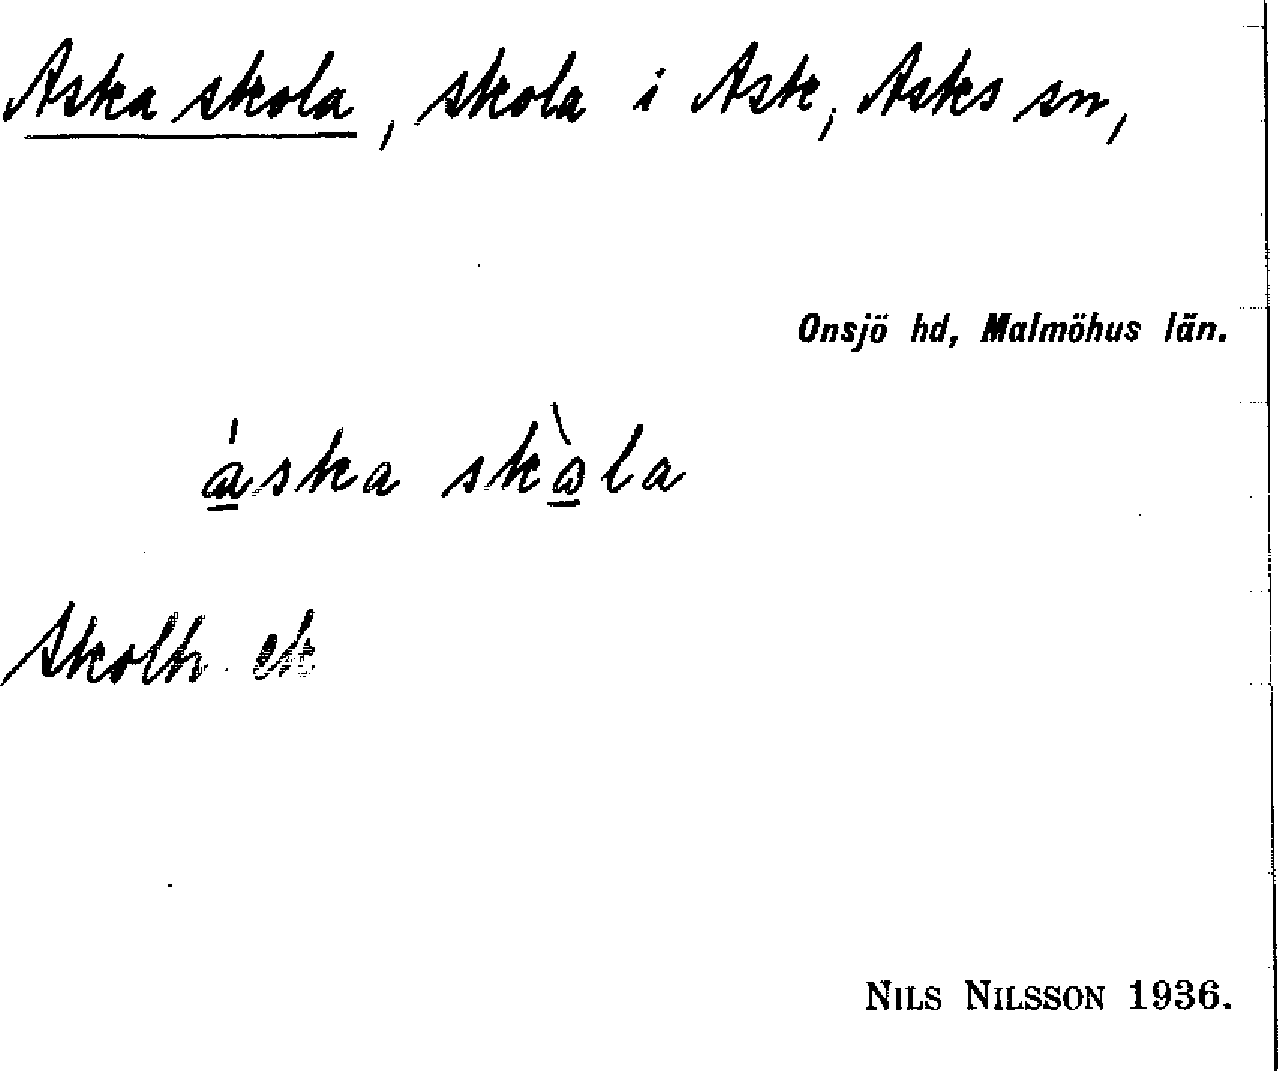 Aska skola, skola i Ask, Asks sn,
Onsjö hd, Malmöhus län.
áska skòla
Skolh. ek
NILS NILSSON 1936.